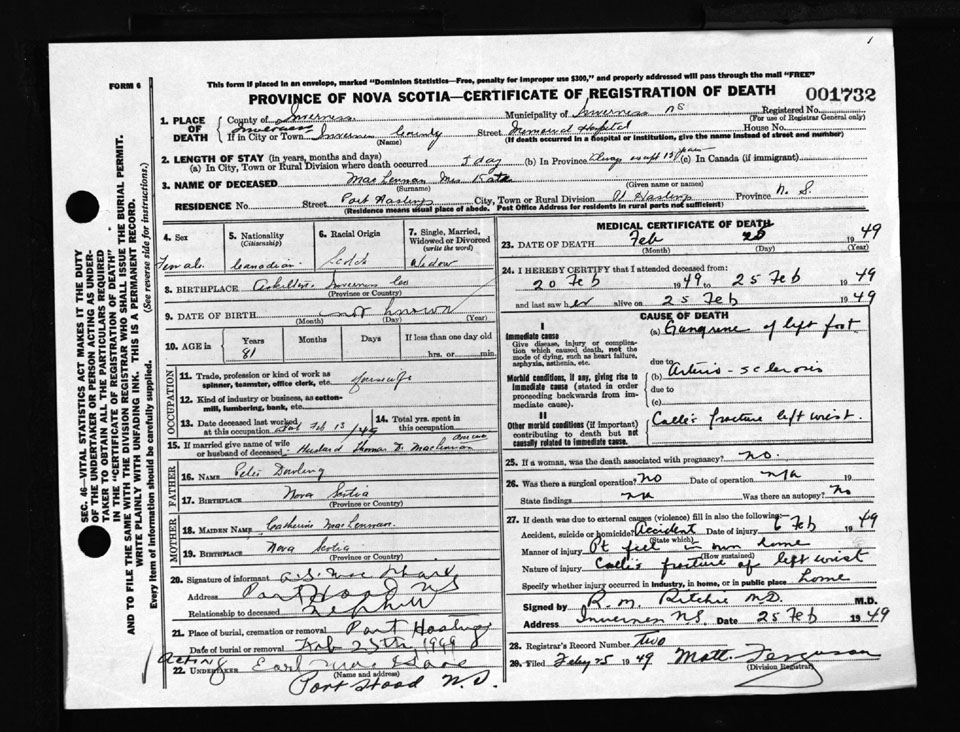 1
FORM 6
This form if placed in an envelope, marked "Dominion Statistics—Free, penalty for improper use $300," and properly addressed will pass through the mail "FREE"
PROVINCE OF NOVA SCOTIA—CERTIFICATE OF REGISTRATION OF DEATH 001732
SEC. 46—VITAL STATISTICS ACT MAKES IT THE DUTY
OF THE UNDERTAKER OR PERSON ACTING AS UNDER-
TAKER TO OBTAIN ALL THE PARTICULARS REQUIRED
IN THE "CERTIFICATE OF REGISTRATION OF DEATH"
AND TO FILE THE SAME WITH THE DIVISION REGISTRAR WHO SHALL ISSUE THE BURIAL PERMIT.
WRITE PLAINLY WITH UNFADING INK. THIS IS A PERMANENT RECORD.
Every item of information should be carefully supplied. (See reverse side for instructions.)
1. PLACE OF DEATH
County of Inverness Municipality of Inverness NS Registered No.
(For use of Registrar General only)
If in City or Town Inverness County Street Memorial Hospital House No.
(Name) (If death occurred in a hospital or institution, give the name instead of street and number)
2. LENGTH OF STAY (in years, months and days)
(a) In City, Town or Rural Division where death occurred day (b) In Province except 15 years (c) In Canada (if immigrant)
3. NAME OF DECEASED MacLennan Mrs Kate
(Surname) (Given name or names)
RESIDENCE No Street Port Hastings City, Town or Rural Division Hastings Province N. S.
(Residence means usual place of abode. Post Office Address for residents in rural parts not sufficient)
4. Sex Female
5. Nationality (Citizenship) Canadian
6. Racial Origin Scotch
7. Single, Married, Widowed or Divorced (write the word) Widow
8. BIRTHPLACE Inverness Co
(Province or Country)
9. DATE OF BIRTH not known
(Month) (Day) (Year)
10. AGE in Years Months Days If less than one day old
81 hrs. or min.
OCCUPATION
11. Trade, profession or kind of work as
spinner, teamster, office clerk, etc. Housewife
12. Kind of industry or business, as cotton-
mill, lumbering, bank, etc.
13. Date deceased last worked at this occupation Feb 13/49
14. Total yrs. spent in this occupation
15. If married give name of wife
or husband of deceased: Husband Thomas D. MacLennan
FATHER
16. Name Peter Dowling
17. Birthplace Nova Scotia
(Province or Country)
MOTHER
18. Maiden Name Catherine MacLennan
19. Birthplace Nova Scotia
(Province or Country)
20. Signature of informant
Address Port Hood NS
Relationship to deceased Nephew
21. Place of burial, cremation or removal Port Hastings
Date of burial or removal Feb 1949
Acting
22. UNDERTAKER Earl
(Name and address)
Port Hood N.S.
MEDICAL CERTIFICATE OF DEATH
23. DATE OF DEATH Feb 25 1949
(Month) (Day) (Year)
24. I HEREBY CERTIFY that I attended deceased from:
20 Feb 1949 to 25 Feb 1949
and last saw her alive on 25 Feb 1949
CAUSE OF DEATH
I
Immediate cause
Give disease, injury or complica-
tion which caused death, not the
mode of dying, such as heart failure,
asphyxia, asthenia, etc.
(a) Gangrene of left foot
due to
Morbid conditions, if any, giving rise to
immediate cause (stated in order
proceeding backwards from im-
mediate cause).
(b) Arterio-sclerosis
due to
(c)
II
Other morbid conditions (if important)
contributing to death but not
causally related to immediate cause.
Colle's fracture left wrist.
25. If a woman, was the death associated with pregnancy? no.
26. Was there a surgical operation? NO Date of operation n/a 19
State findings n/a Was there an autopsy? No
27. If death was due to external causes (violence) fill in also the following:—
Accident, suicide or homicide? Accident Date of injury 6 Feb 1949
(State which)
Manner of injury Pt fell in own home
(How sustained)
Nature of injury Colle's fracture of left wrist
Specify whether injury occurred in industry, in home, or in public place home
Signed by R. M. Ritchie M.D. M.D.
Address Inverness N.S. Date 25 Feb 1949
28. Registrar's Record Number two
29. Filed Feby 25 1949 Matt. Ferguson
(Division Registrar)